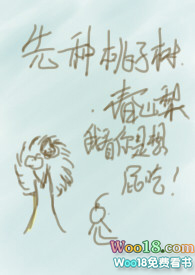 先种桃子树
春山梨
我看你是想
屁吃！
Woo18.com
Woo18免费看书